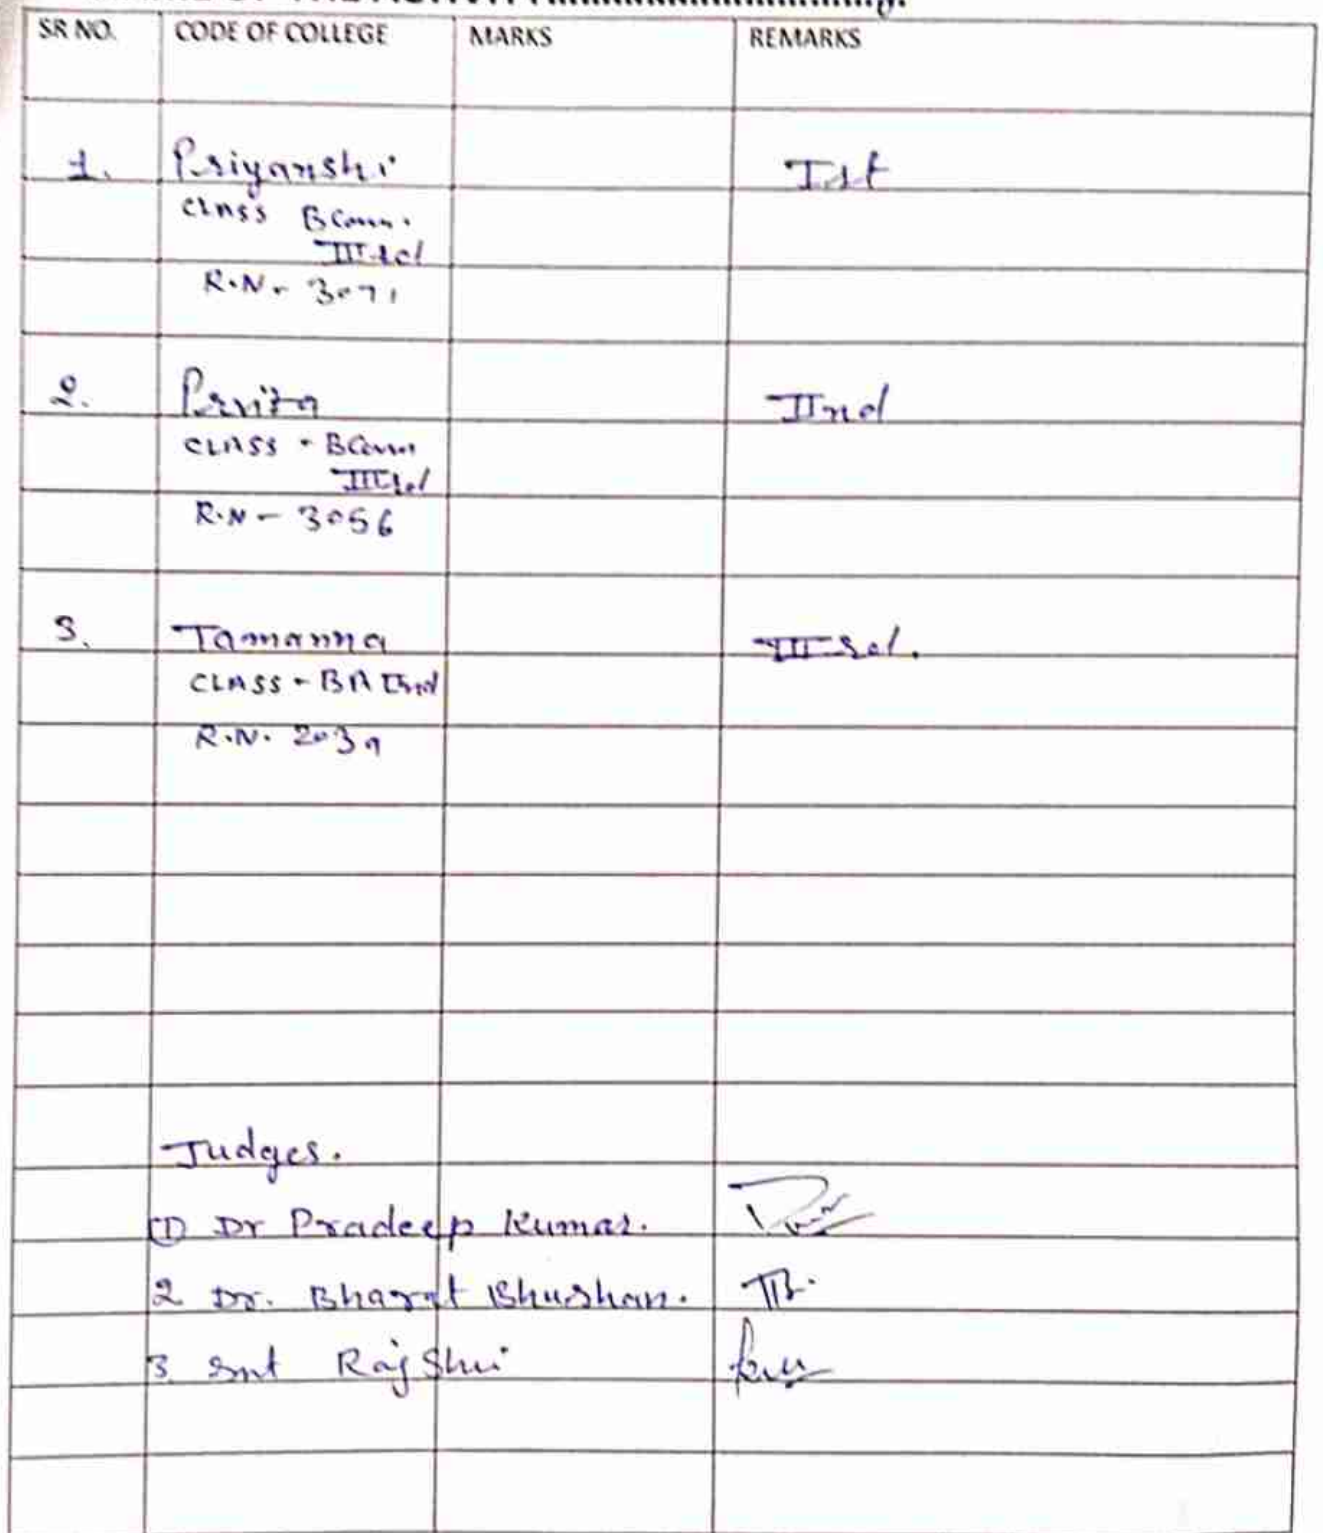 OF THE
SR NO. CODE OF COLLEGE MARKS REMARKS
1. Priyanshi Ist
CLASS BCom.
IIIrd
R.N. 3071
2. IInd
CLASS - BCom
IIIrd
R.N - 3056
3. Tamanna IIIrd.
CLASS - BA IInd
R.N. 2039
Judges.
① Dr Pradeep Kumar.
2 Dr. Bharat Bhushan.
3. Smt Raj Shri